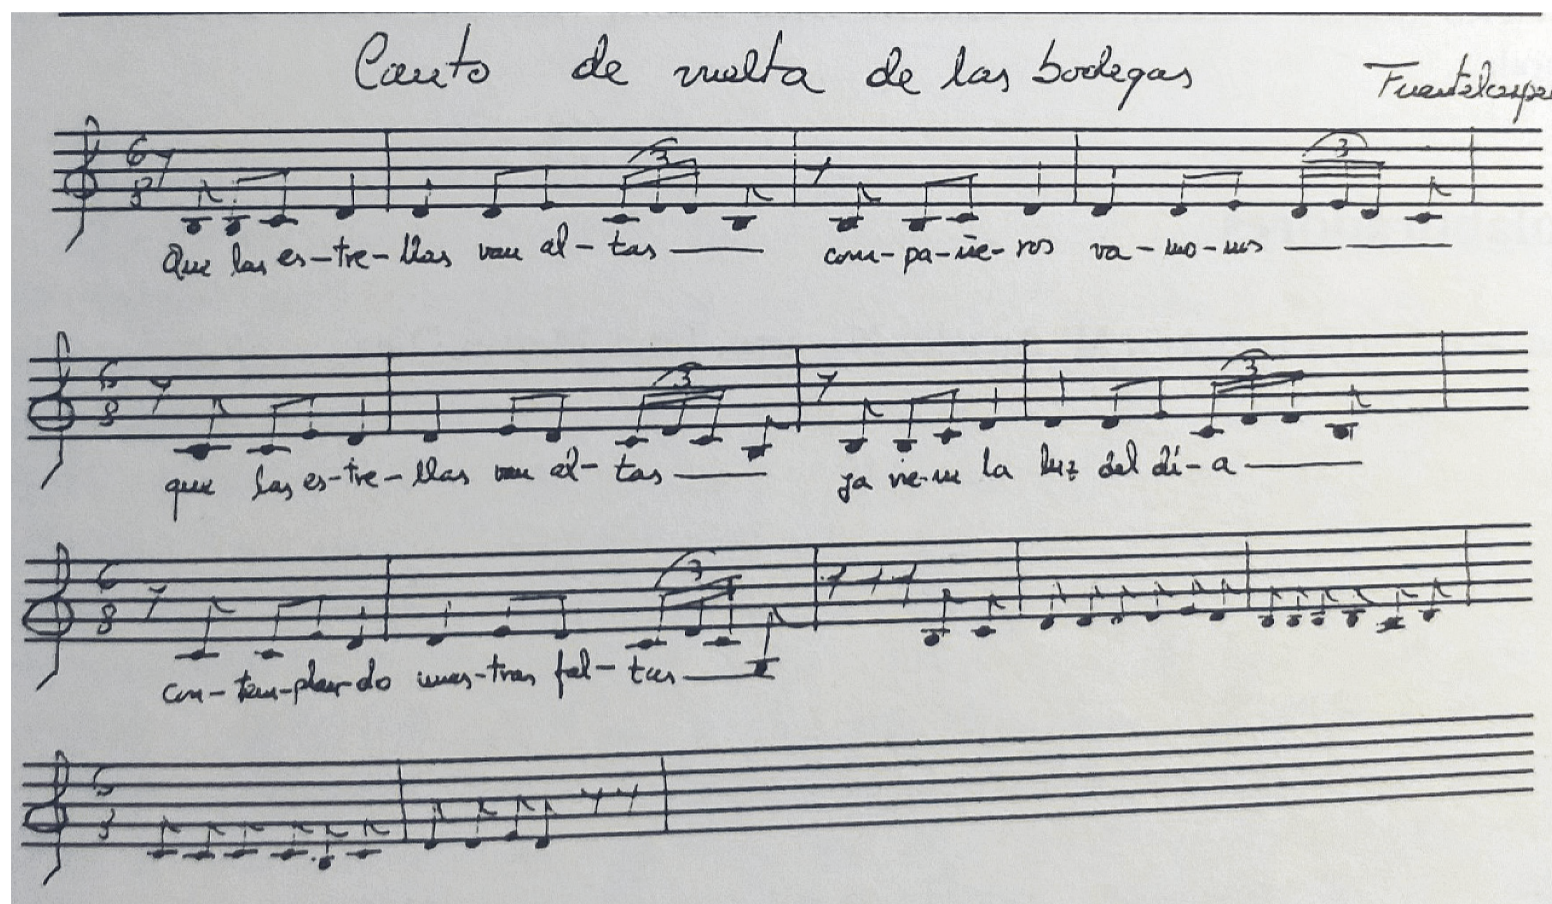 Canto de vuelta de las bodegas
6 8 3 3
Que las es-tre-llas van al-tas com-pa-ñe-ros va-mo-nos
6 8 3 3
que las es-tre-llas van al-tas ya vie-ne la luz del dí-a
6 8 3
con-tem-plan-do nues-tras fal-tas